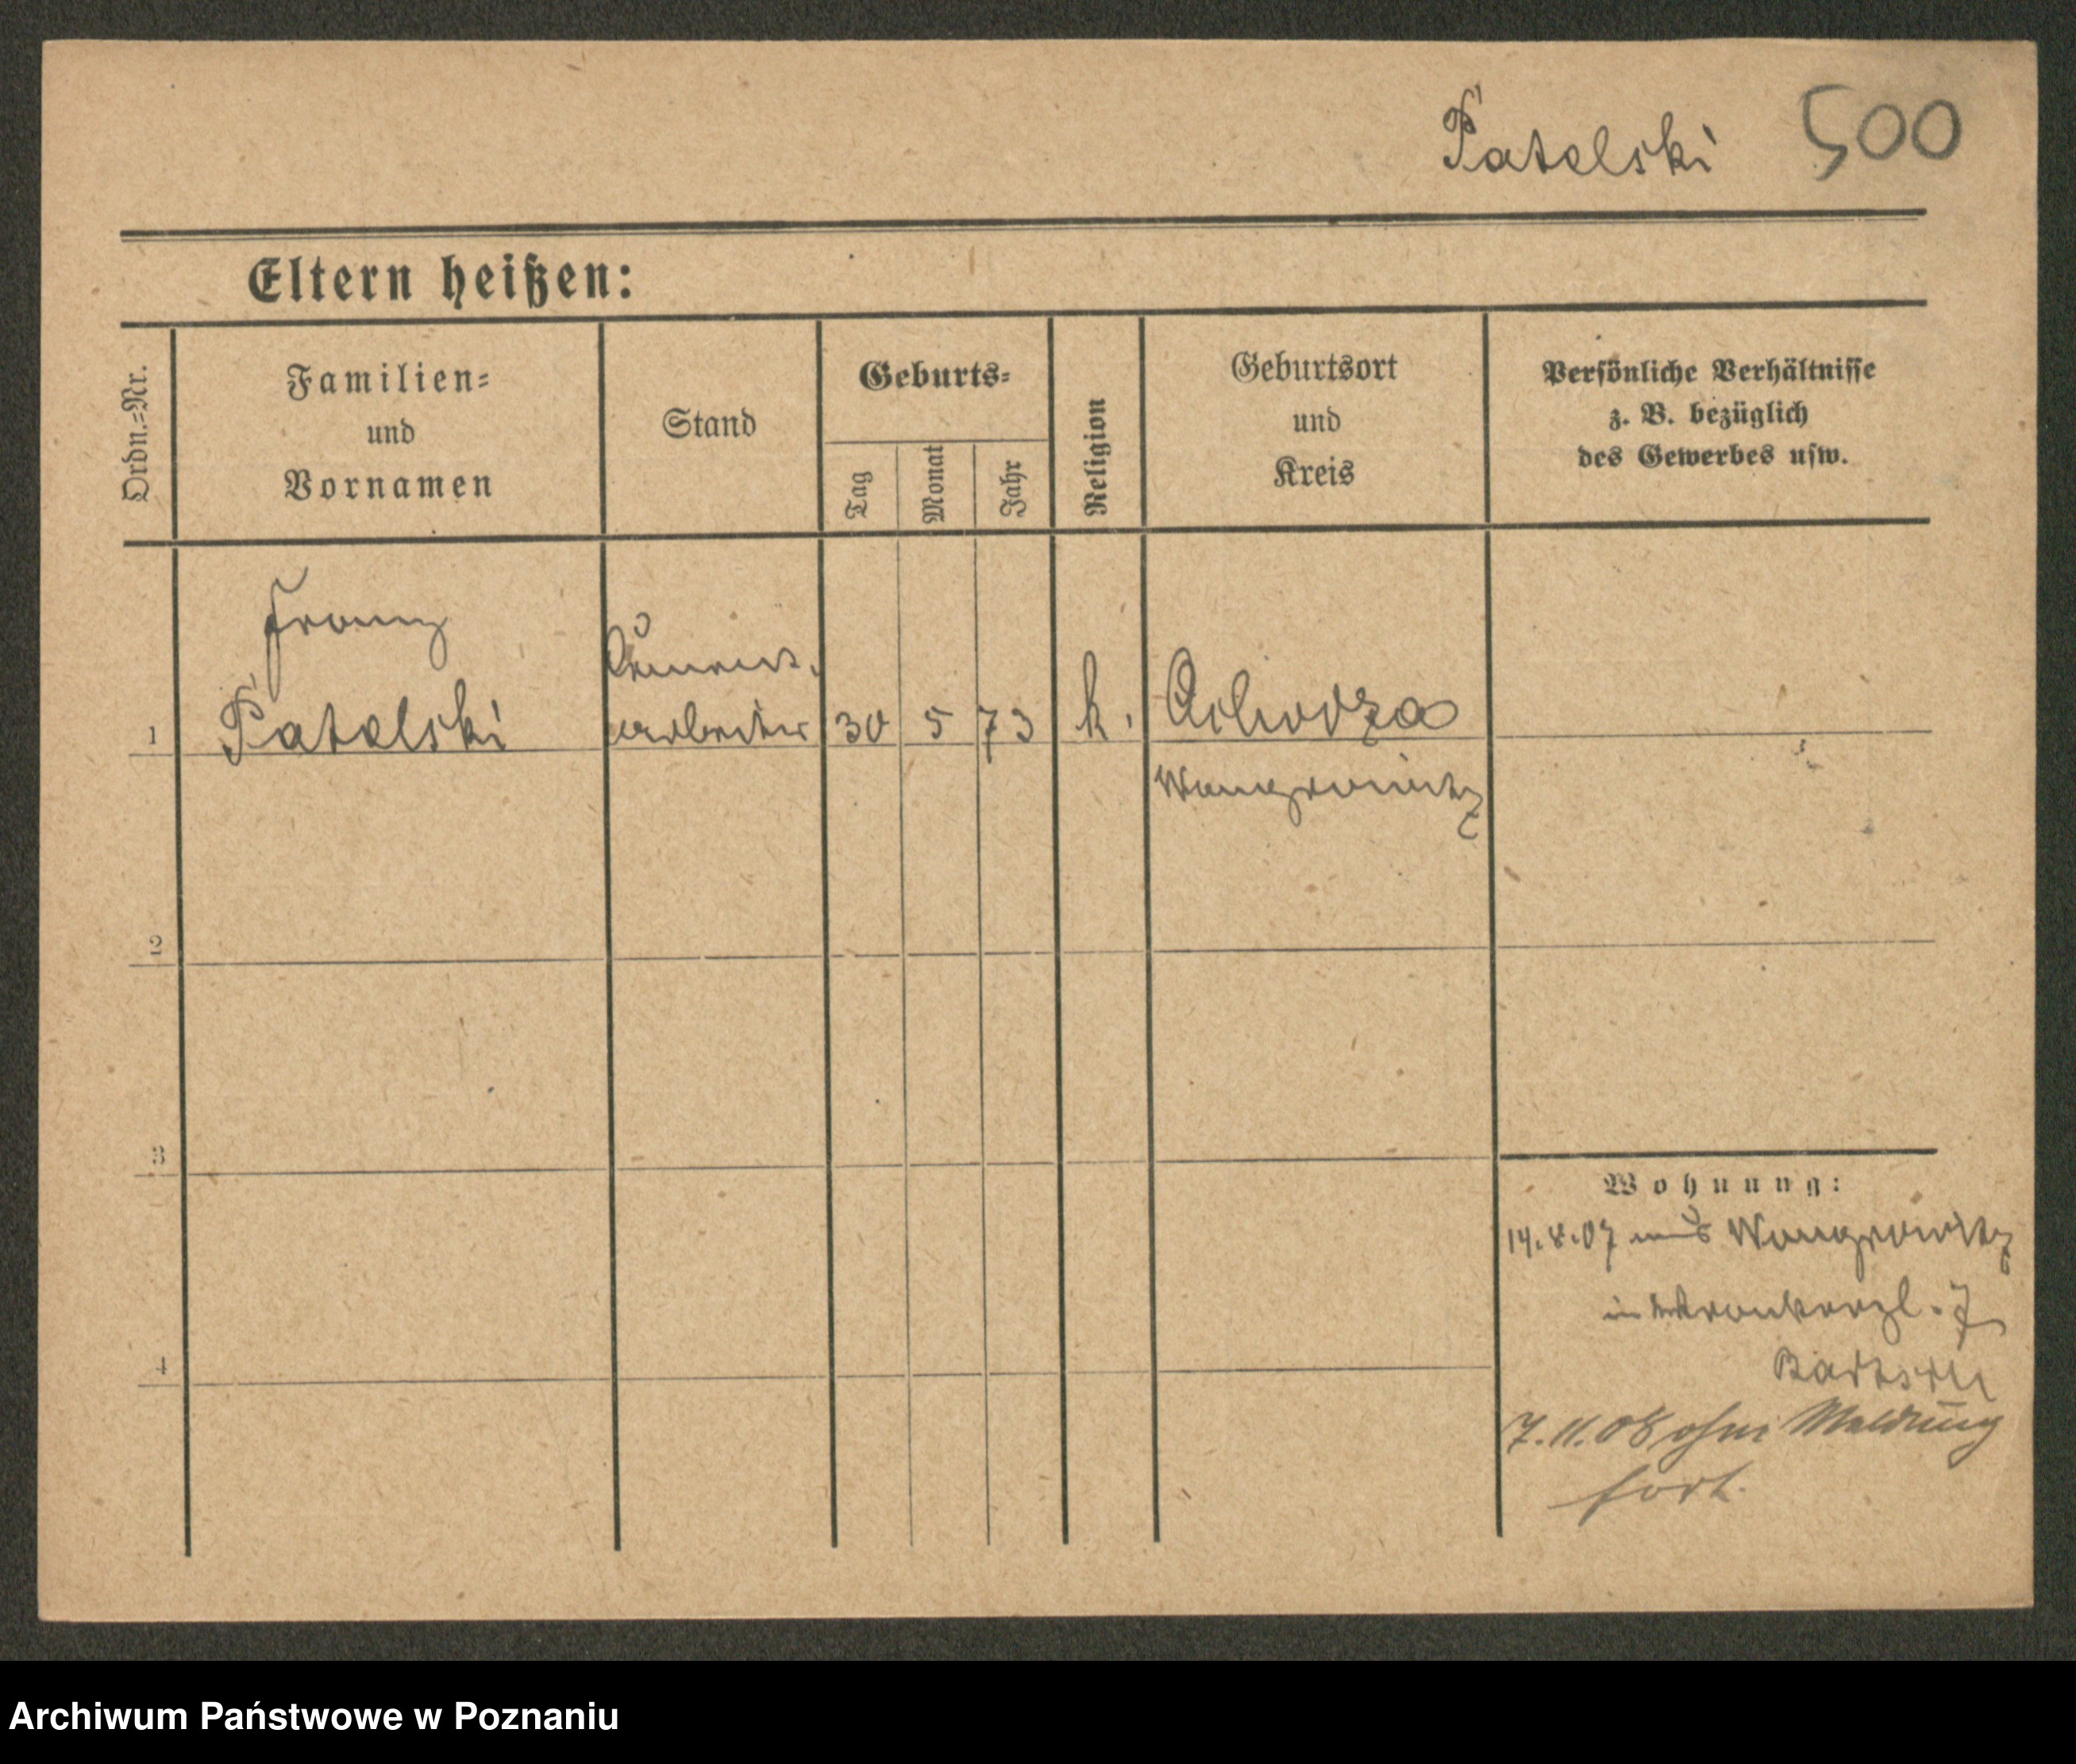 Patelski 500
Eltern heißen:
Ordn.=Nr.
Familien=
und
Vornamen
Stand
Geburts=
Tag
Monat
Jahr
Religion
Geburtsort
und
Kreis
Persönliche Verhältnisse
z. B. bezüglich
des Gewerbes usw.
Franz
1 Patelski
arbeiter
30 5 73 k.
Wongrowitz
2
3
4
Wohnung:
14.8.07 aus Wongrowitz
in
7.11.08 ohne Meldung
fort.
Archiwum Państwowe w Poznaniu